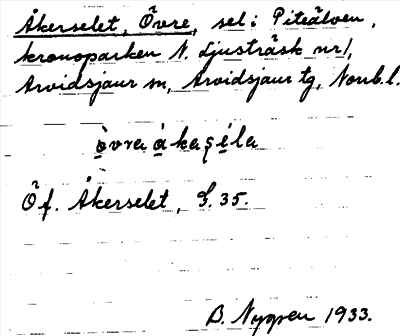 Åkerselet, Övre, sel i Piteälven,
kronoparken N. Ljusträsk nr 1,
Arvidsjaur sn, Arvidsjaur tg, Norrb. l.
òvra àkaşéla
Öf. Åkerselet, G. 35.
B. Nygren 1933.